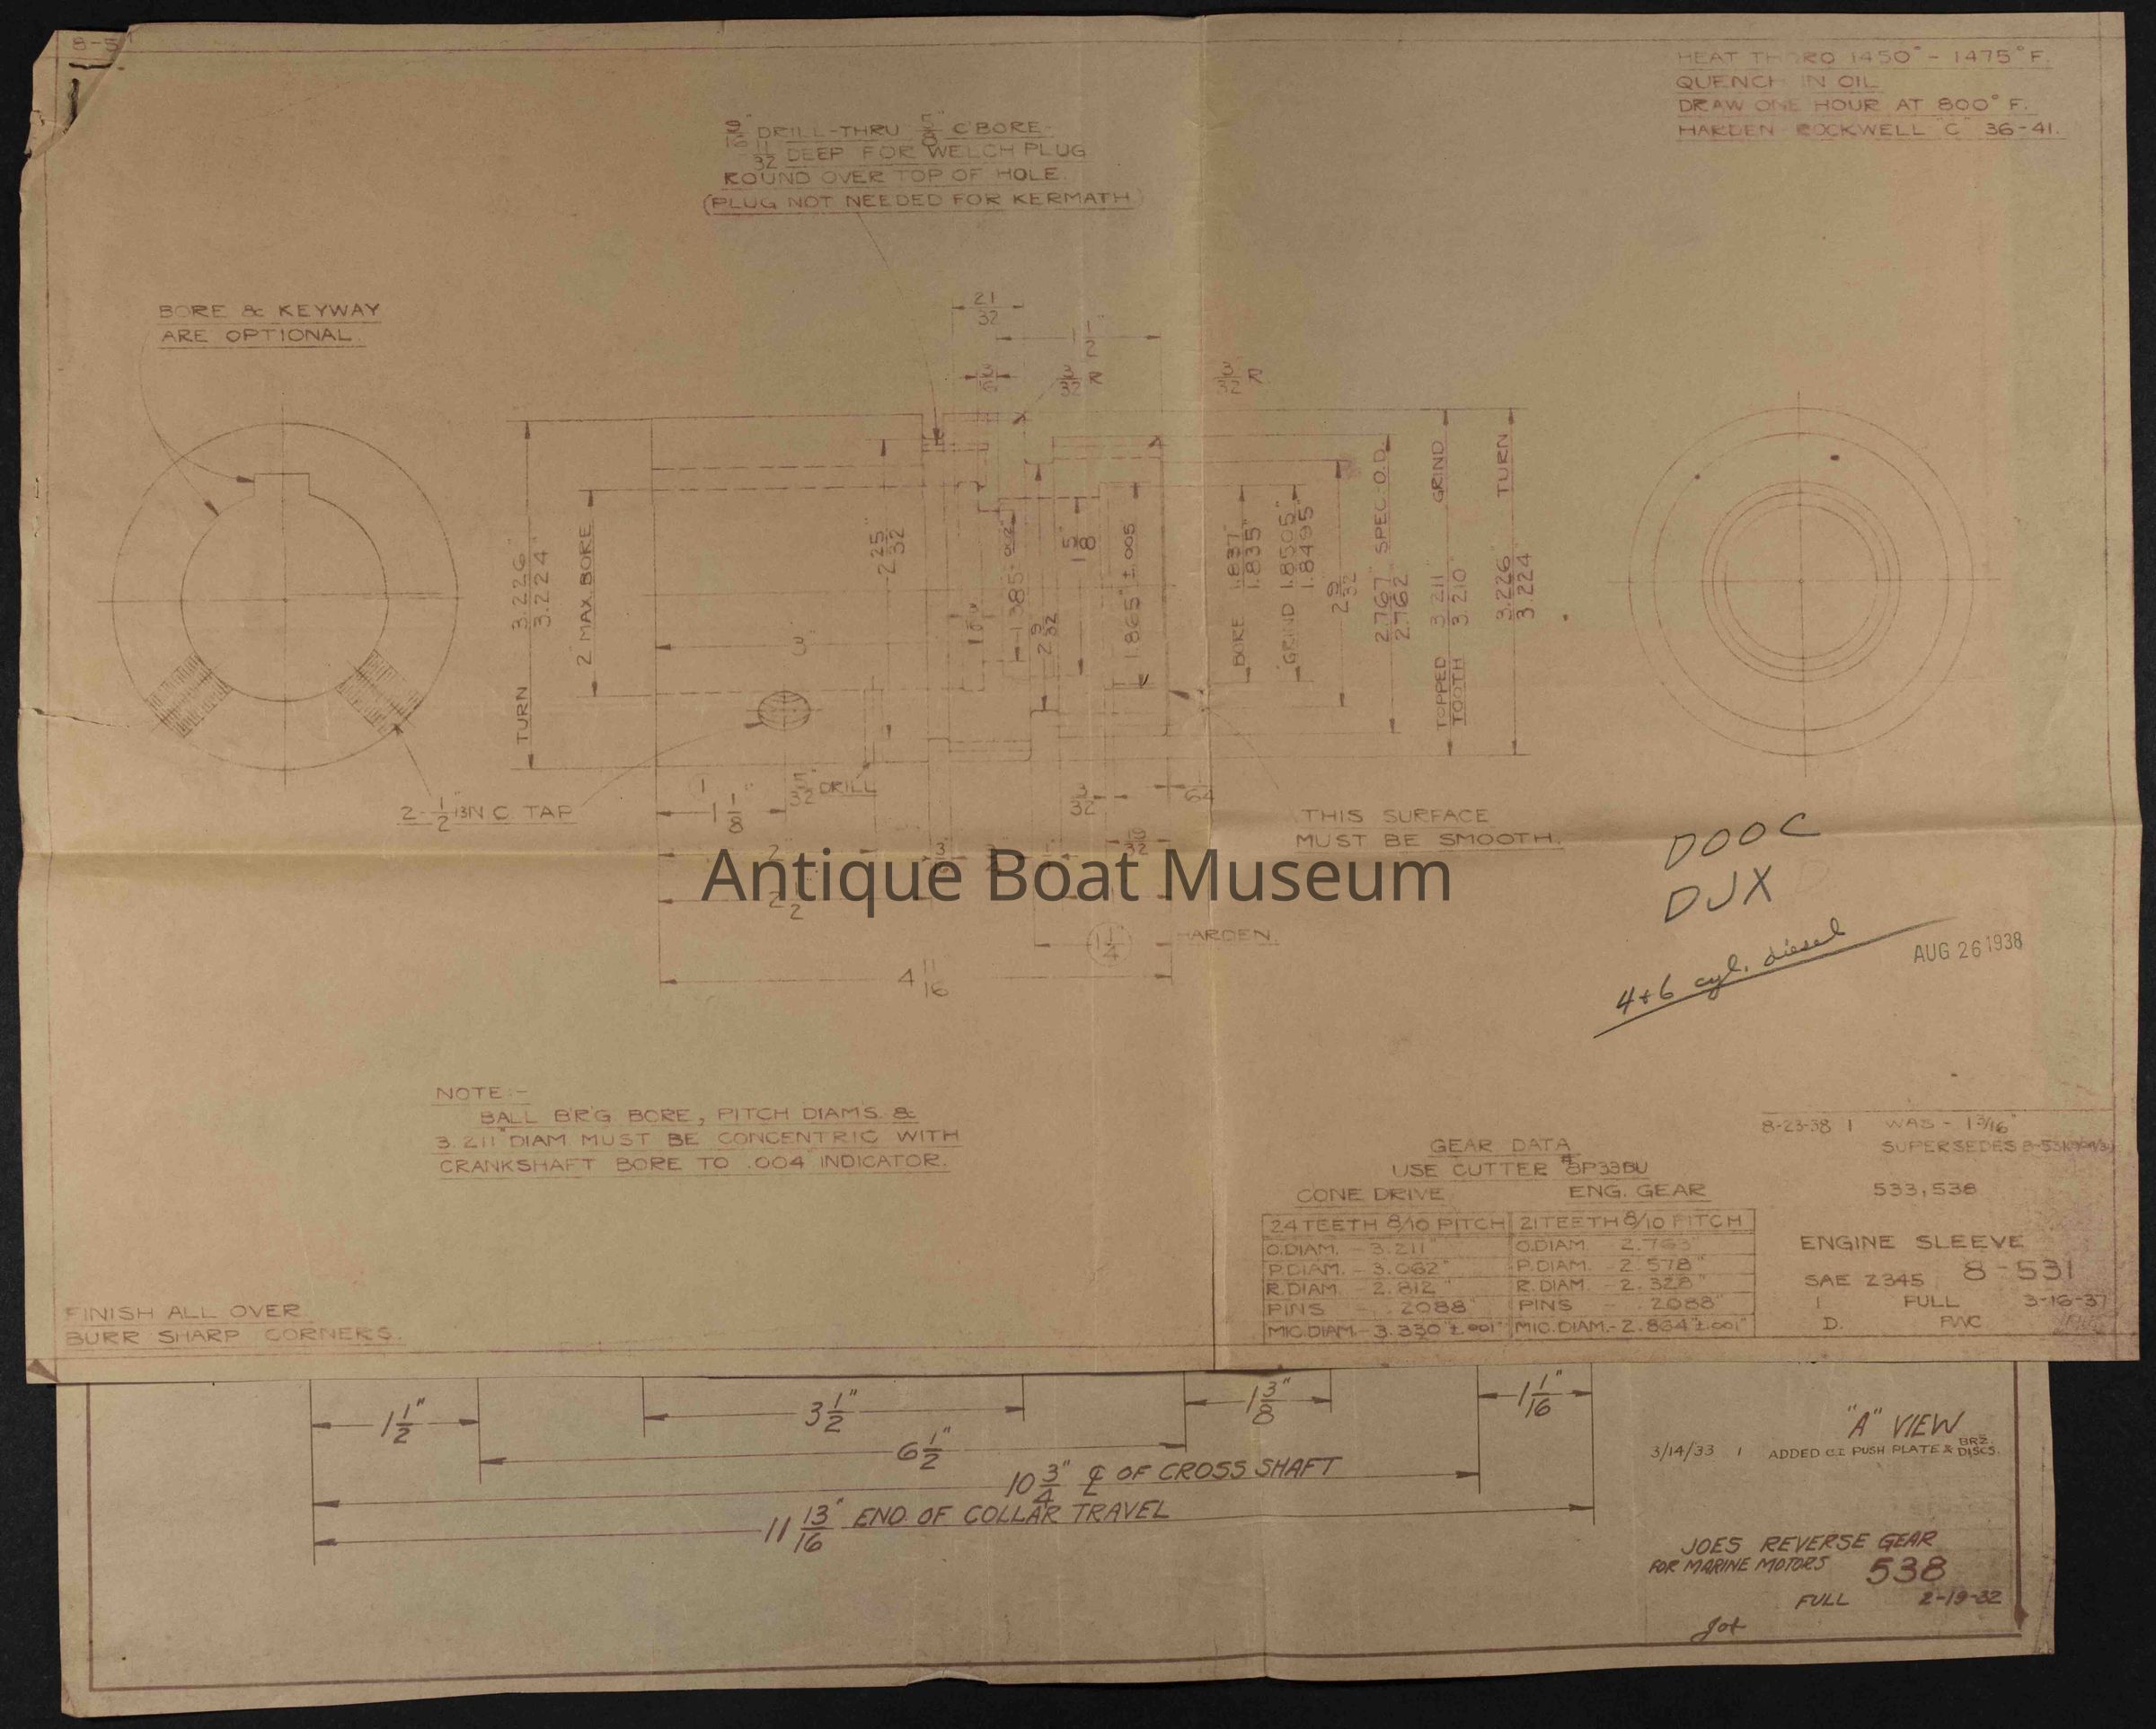 HEAT THORO 1450° - 1475° F.
QUENCH IN OIL
DRAW ONE HOUR AT 800° F.
HARDEN ROCKWELL "C" 36-41.
9/16" DRILL-THRU 5/8" C'BORE-
11/32 DEEP FOR WELCH PLUG
ROUND OVER TOP OF HOLE.
(PLUG NOT NEEDED FOR KERMATH)
BORE & KEYWAY
ARE OPTIONAL.
21/32
1 1/2"
3/32 R
3/32 R
TURN 3.226"
3.224"
2" MAX. BORE
2 25/32"
3
2 9/32
1 5/8"
1.865" ±.005
BORE 1.837"
1.835"
GRIND 1.8505"
1.8495"
2 9/32
2.767" SPEC. O.D.
2.762
TOPPED TOOTH 3.211" GRIND
3.210"
3.226" TURN
3.224
2-1/2"13N.C. TAP
1 1/8"
5/32" DRILL
3/32
1/64
THIS SURFACE
MUST BE SMOOTH.
2 1/2
1 1/4
HARDEN.
4 11/16
Antique Boat Museum
DOOC
DJX
4+6 cyl. diesel
AUG 26 1938
NOTE:-
BALL B'R'G BORE, PITCH DIAMS. &
3.211" DIAM MUST BE CONCENTRIC WITH
CRANKSHAFT BORE TO .004 INDICATOR.
8-23-38 1 WAS - 1 3/16"
SUPERSEDES
533,538
GEAR DATA
USE CUTTER #8P33BU
CONE DRIVE ENG. GEAR
24 TEETH 8/10 PITCH 21 TEETH 8/10 PITCH
O.DIAM. - 3.211" O.DIAM. - 2.763"
P.DIAM. - 3.062" P.DIAM. - 2.578"
R.DIAM. - 2.812" R.DIAM. - 2.328"
PINS - .2088" PINS - .2088"
MIC.DIAM.- 3.330"±.001" MIC.DIAM.- 2.864"±.001"
ENGINE SLEEVE
SAE 2345 8-531
1 FULL 3-16-37
D. FWC
FINISH ALL OVER.
BURR SHARP CORNERS.
1 1/2"
3 1/2"
1 3/8"
1 1/16"
6 1/2"
10 3/4" ℄ OF CROSS SHAFT
11 13/16" END OF COLLAR TRAVEL
"A" VIEW
3/14/33 1 ADDED C.I. PUSH PLATE & BRZ. DISCS.
JOES REVERSE GEAR
FOR MARINE MOTORS 538
FULL 2-19-32